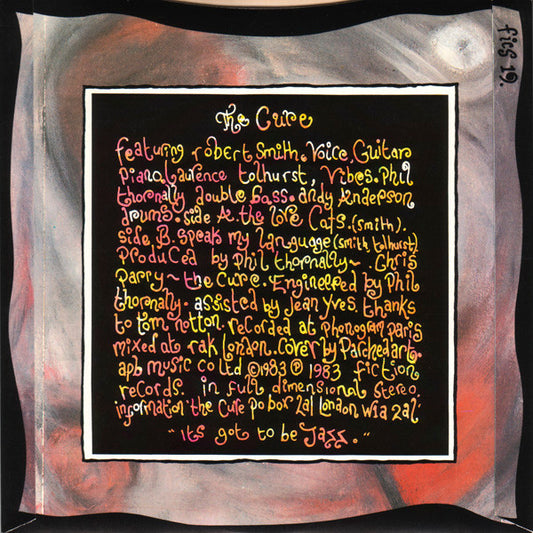 The Cure
featuring robert Smith. Voice. Guitar
Piano. Laurence tolhurst, Vibes. Phil
thornally double Bass. andy Anderson
drums. side A. the love Cats. (smith).
side B. speak my language (smith tolhurst)
ProduCed by Phil thornally ~ Chris
Parry ~ the Cure. Engineered by Phil
thornally. assisted by jean yves thanks
to tom notton. recorded at phonogram paris
mixed at rak london. Cover by Parchedart.
apb music co ltd © 1983 ℗ 1983 fiction
records. in full dimensional stereo
information 'the Cure po box 2al london w1a 2al'
"its got to be Jazz."
fics 19.